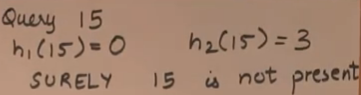 Query 15
h₁(15)=0 h₂(15)=3
SURELY 15 is not present